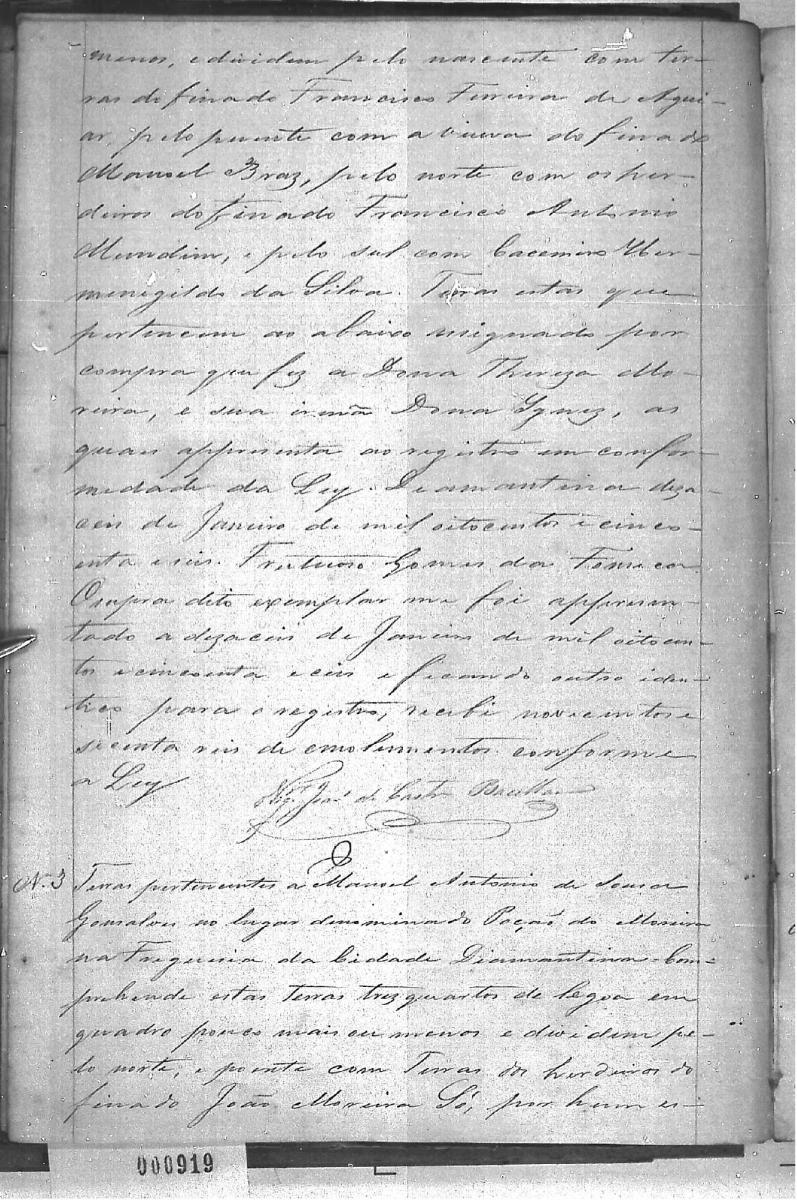 menos, e dividem pelo nascente com ter-
ras do finado Francisco Ferreira de Agui-
ar, pelo puente com a viuva do finado
Manoel Braz, pelo norte com os her-
deiros do finado Francisco Antonio
Mundim, e pelo sul com Cacemiro Her-
menegildo da Silva. Terras estas que
pertencem ao abaixo assignado por
compra que fez a Dona Thereza Mo-
reira, e sua irmã Dona Ignez, as
quais appresenta ao registro em confor-
midade da Ley. Diamantina deza-
ceis de Janeiro de mil oitocentos e cinco-
enta e seis. Fructuoso Gomes da Fonseca
O supra dito exemplar me foi appresen-
tado a dezaceis de Janeiro de mil oitocen-
tos e cincoenta e ceis e ficando outro iden-
tico para o registro, recebi novecentos e
secenta reis de emolumentos conforme
a Ley
José de Castro Bacellar
N. 3 Terras pertencentes a Manoel Antonio de Sousa
Gonsalves no lugar denominado Poção do Moreira
na Freguesia da Cidade Diamantina. Com-
prehende estas terras trez quartos de legoa em
quadro pouco mais ou menos e dividem pe-
lo norte, e poente com Terras dos herdeiros do
finado João Moreira Só, por hum es-
000919